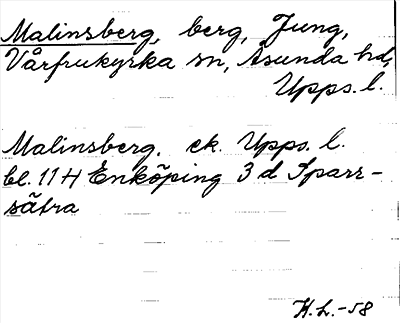 Malinsberg, berg, Jung,
Vårfrukyrka sn, Åsunda hd,
Upps. l.
Malinsberg. ek. Upps. l.
bl. 11 H Enköping 3 d Sparr-
sätra
K.L.-58